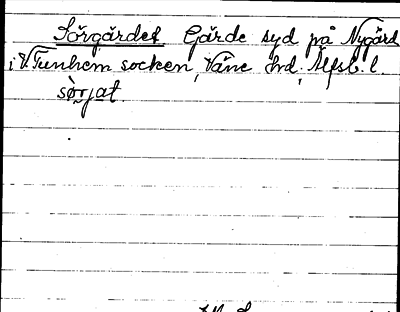 Sörgärdet Gärde syd på Nygård
i V. Tunhem socken, Väne hd. Älfsb. l.
sörjat